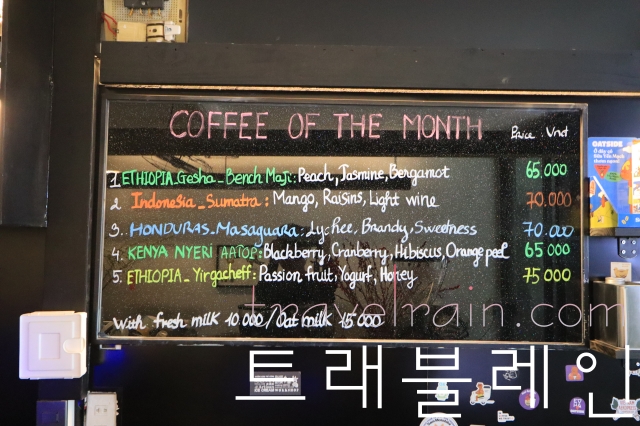 COFFEE OF THE MONTH Price: Vnd
1. ETHIOPIA_Gesha_Bench Maji: Peach, Jasmine, Bergamot 65.000
2 Indonesia_Sumatra: Mango, Raisins, Light wine 70.000
3. HONDURAS_Masaguara: Lychee, Brandy, Sweetness 70.000
4. KENYA NYERI AATOP: Blackberry, Cranberry, Hibiscus, Orange peel 65 000
5. ETHIOPIA_Yirgacheff: Passion fruit, Yogurt, Honey 75 000
With fresh milk 10 000 / Oat milk 15 000
CATSIDE
travelrain.com
트래블레인